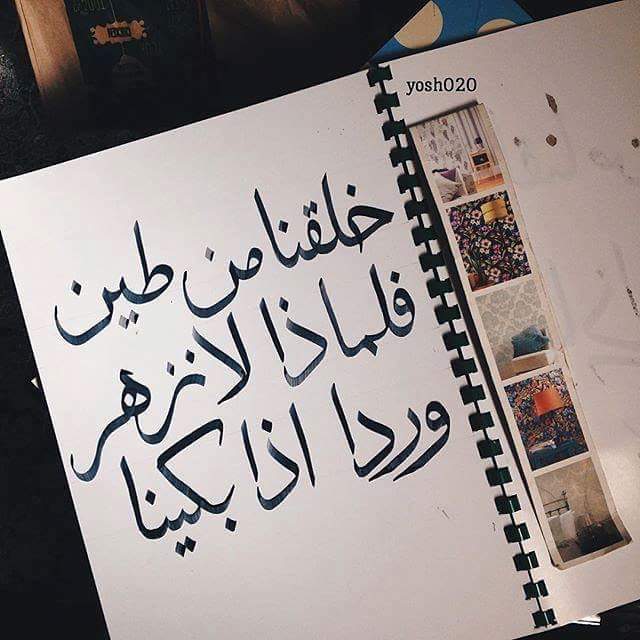 yosh020
خلقنا من طين
فلماذا لا نزهر
وردا اذا بكينا